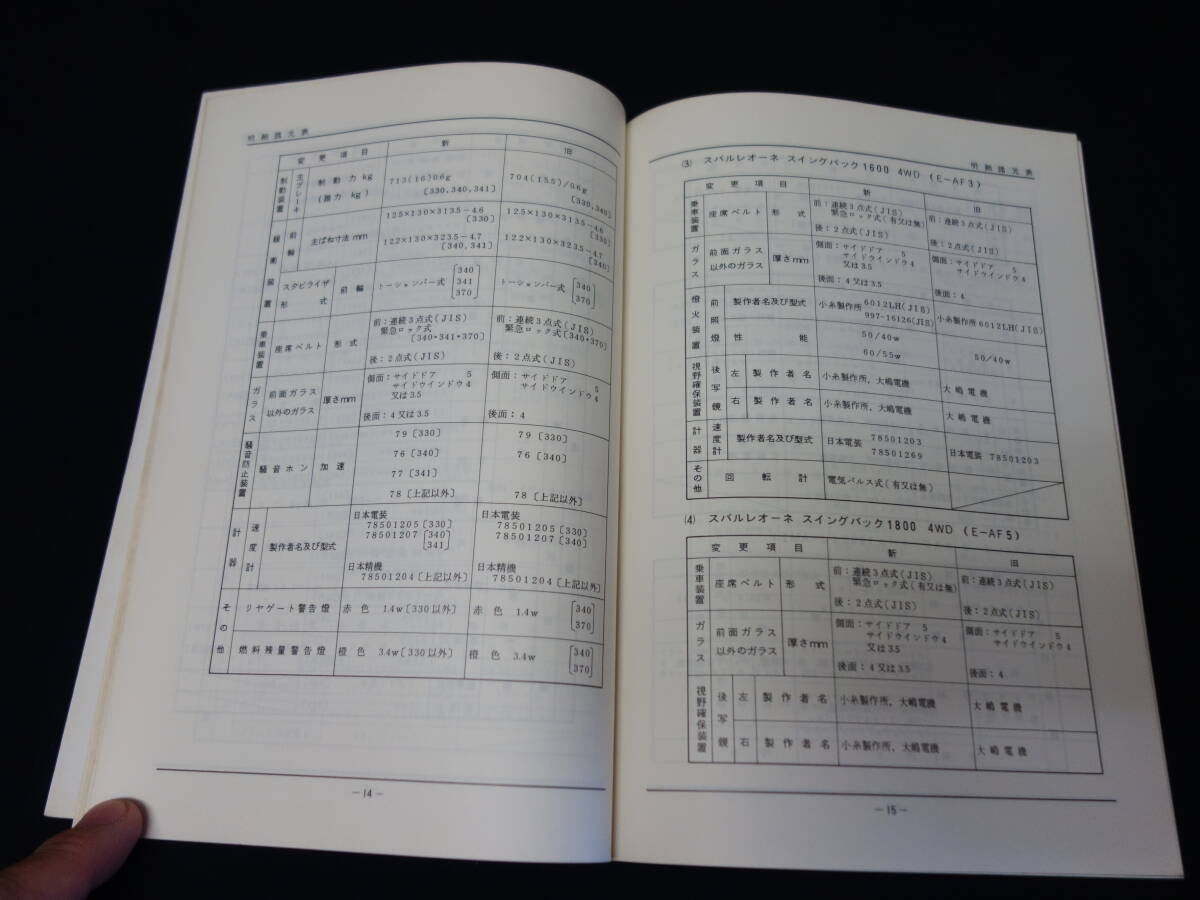 明細諸元表
変更項目 新 旧
制動装置 主ブレーキ 制動力 kg (踏力 kg) 713(16)0.6g [330,340,341] 704(15.5)/0.6g [330,340]
緩衝装置 前輪 主ばね寸法mm 12.5×130×313.5-4.6 [330] 12.5×130×313.5-4.6 [330]
12.2×130×323.5-4.7 [340,341] 12.2×130×323.5-4.7 [340]
スタビライザ形式 前輪 トーションバー式 [340 341 370] トーションバー式 [340 370]
乗車装置 座席ベルト 形式 前:連続3点式(JIS) 緊急ロック式 [340・341・370] 後:2点式(JIS) 前:連続3点式(JIS) 緊急ロック式[340・370] 後:2点式(JIS)
ガラス 前面ガラス以外のガラス 厚さmm 側面:サイドドア 5 サイドウインドウ4 又は3.5 後面:4又は3.5 側面:サイドドア 5 サイドウインドウ4 後面:4
騒音防止装置 騒音ホン 加速 79[330] 79[330]
76[340] 76[340]
77[341]
78[上記以外] 78[上記以外]
計器 速度計 製作者名及び型式 日本電装 78501205[330] 78501207[340 341] 日本電装 78501205[330] 78501207[340]
日本精機 78501204[上記以外] 日本精機 78501204[上記以外]
その他 リヤゲート警告燈 赤色 1.4w[330以外] 赤色 1.4w [340 370]
燃料残量警告燈 橙色 3.4w[330以外] 橙色 3.4w [340 370]
-14-
明細諸元表
(3) スバルレオーネ スイングバック1600 4WD (E-AF3)
変更項目 新 旧
乗車装置 座席ベルト 形式 前:連続3点式(JIS) 緊急ロック式(有又は無) 後:2点式(JIS) 前:連続3点式(JIS) 後:2点式(JIS)
ガラス 前面ガラス以外のガラス 厚さmm 側面:サイドドア 5 サイドウインドウ4 又は3.5 後面:4又は3.5 側面:サイドドア 5 サイドウインドウ4 後面:4
燈火装置 前照燈 製作者名及び型式 小糸製作所 6012LH(JIS) 997-16126(JIS) 小糸製作所6012LH(JIS)
性能 50/40w 60/55w 50/40w
視野確保装置 後写鏡 左 製作者名 小糸製作所,大嶋電機 大嶋電機
右 製作者名 小糸製作所,大嶋電機 大嶋電機
計器 速度計 製作者名及び型式 日本電装 78501203 78501269 日本電装 78501203
その他 回転計 電気パルス式(有又は無)
(4) スバルレオーネ スイングバック1800 4WD (E-AF5)
変更項目 新 旧
乗車装置 座席ベルト 形式 前:連続3点式(JIS) 緊急ロック式(有又は無) 後:2点式(JIS) 前:連続3点式(JIS) 後:2点式(JIS)
ガラス 前面ガラス以外のガラス 厚さmm 側面:サイドドア 5 サイドウインドウ4 又は3.5 後面:4又は3.5 側面:サイドドア 5 サイドウインドウ4 後面:4
視野確保装置 後写鏡 左 製作者名 小糸製作所,大嶋電機 大嶋電機
右 製作者名 小糸製作所,大嶋電機 大嶋電機
-15-